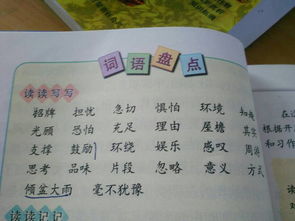 词语盘点
读读写写
招牌 担忧 急切 惧怕 环境 知趣
光顾 恐怕 充足 理由 屋檐 其实
支撑 鼓励 环绕 娱乐 感叹 周游
思考 品味 片段 忽略 意义 方式
倾盆大雨 毫不犹豫
读读记记
在
根据开
和习作